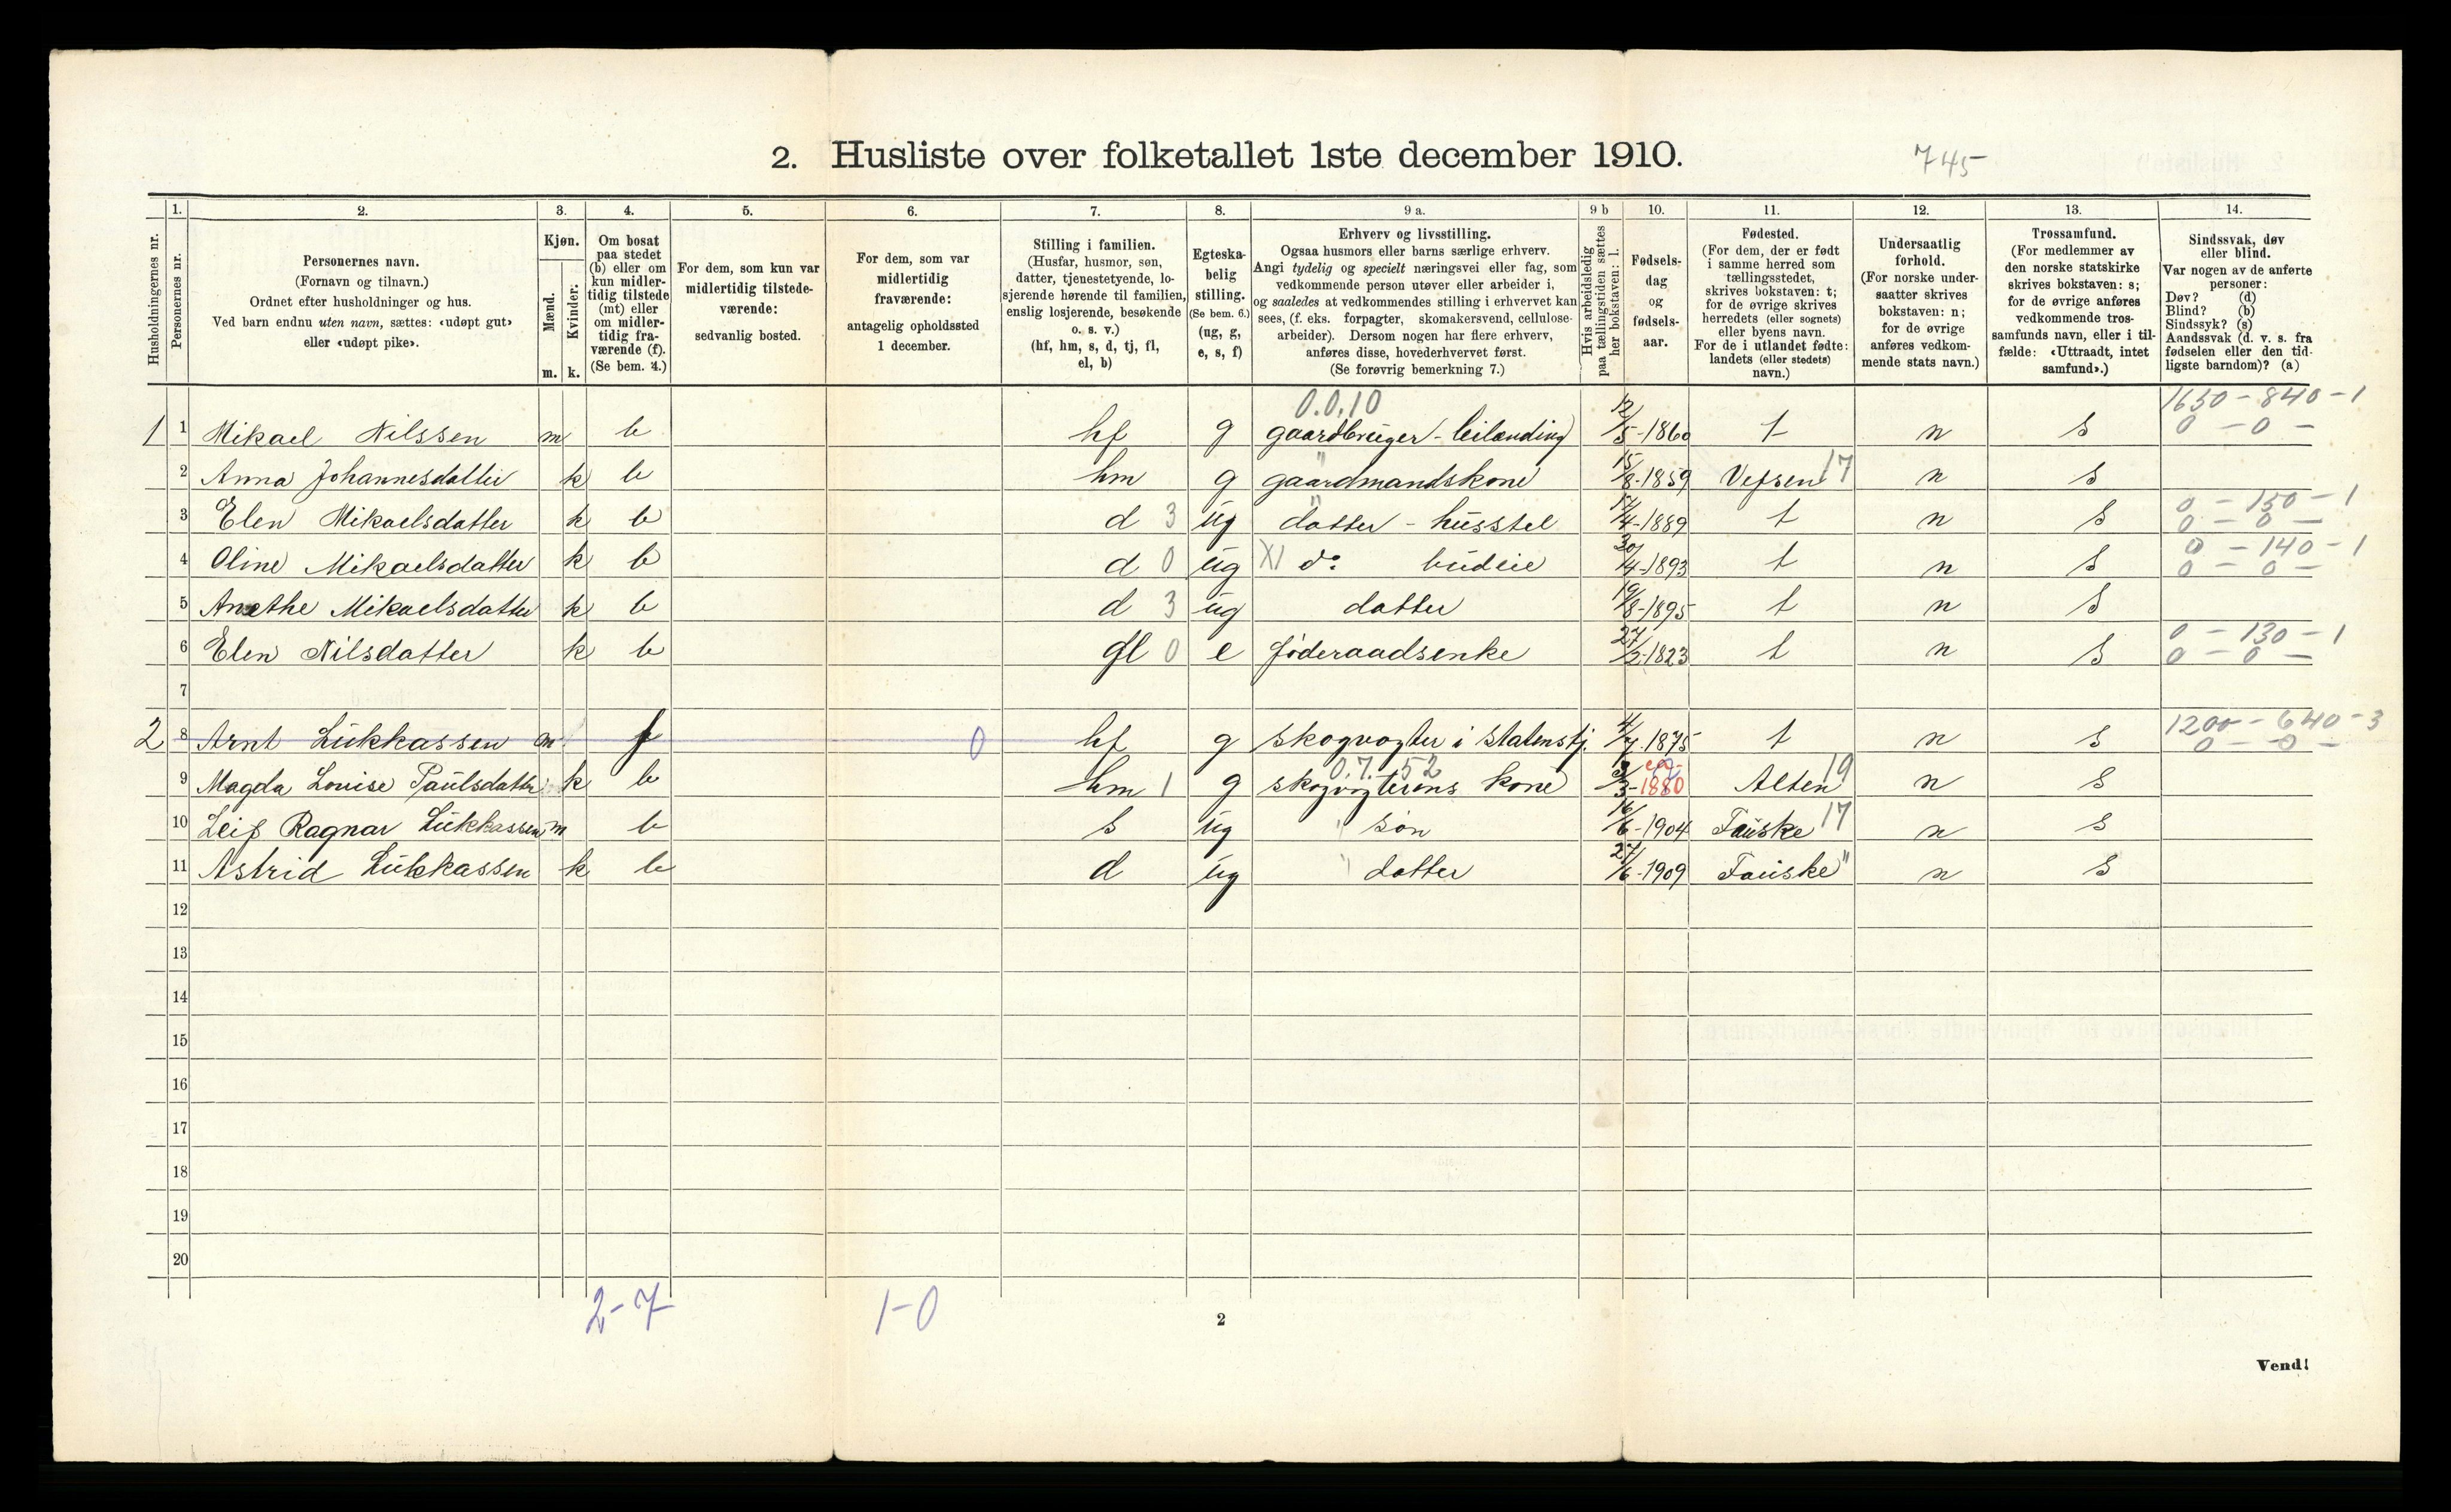 2. Husliste over folketallet 1ste december 1910.
745
Husholdningernes nr.
1.
Personernes nr.
2.
Personernes navn.
(Fornavn og tilnavn.)
Ordnet efter husholdninger og hus.
Ved barn endnu uten navn, sættes: «udøpt gut»
eller «udøpt pike».
3.
Kjøn.
Mænd.
Kvinder.
m. k.
4.
Om bosat
paa stedet
(b) eller om
kun midler-
tidig tilstede
(mt) eller
om midler-
tidig fra-
værende (f).
(Se bem. 4.)
5.
For dem, som kun var
midlertidig tilstede-
værende:
sedvanlig bosted.
6.
For dem, som var
midlertidig
fraværende:
antagelig opholdssted
1 december.
7.
Stilling i familien.
(Husfar, husmor, søn,
datter, tjenestetyende, lo-
sjerende hørende til familien,
enslig losjerende, besøkende
o. s. v.)
(hf, hm, s, d, tj, fl,
el, b)
8.
Egteska-
belig
stilling.
(Se bem. 6.)
(ug, g,
e, s, f)
9 a.
Erhverv og livsstilling.
Ogsaa husmors eller barns særlige erhverv.
Angi tydelig og specielt næringsvei eller fag, som
vedkommende person utøver eller arbeider i,
og saaledes at vedkommendes stilling i erhvervet kan
sees, (f. eks. forpagter, skomakersvend, cellulose-
arbeider). Dersom nogen har flere erhverv,
anføres disse, hovederhvervet først.
(Se forøvrig bemerkning 7.)
9 b
Hvis arbeidsledig
paa tællingstiden sættes
her bokstaven: l.
10.
Fødsels-
dag
og
fødsels-
aar.
11.
Fødested.
(For dem, der er født
i samme herred som
tællingsstedet,
skrives bokstaven: t;
for de øvrige skrives
herredets (eller sognets)
eller byens navn.
For de i utlandet fødte:
landets (eller stedets)
navn.)
12.
Undersaatlig
forhold.
(For norske under-
saatter skrives
bokstaven: n;
for de øvrige
anføres vedkom-
mende stats navn.)
13.
Trossamfund.
(For medlemmer av
den norske statskirke
skrives bokstaven: s;
for de øvrige anføres
vedkommende tros-
samfunds navn, eller i til-
fælde: «Uttraadt, intet
samfund».)
14.
Sindssvak, døv
eller blind.
Var nogen av de anførte
personer:
Døv? (d)
Blind? (b)
Sindssyk? (s)
Aandssvak (d. v. s. fra
fødselen eller den tid-
ligste barndom)? (a)
0.0.10 1650 - 840 - 1
1 1 Mikael Nilssen m b hf g gaardbruger - leilænding 12/5-1860 t n s 0 - 0 -
2 Anna Johannesdatter k b hm g " gaardmandskone 15/8-1859 Vefsen 17 n s
0 - 150 - 1
3 Elen Mikaelsdatter k b d 3 ug " datter - husstel 17/4-1889 t n s 0 - 0 -
0 - 140 - 1
4 Oline Mikaelsdatter k b d 0 ug XI do budeie 30/4-1893 t n s 0 - 0 -
5 Anethe Mikaelsdatter k b d 3 ug datter 19/8-1895 t n s
0 - 130 - 1
6 Elen Nilsdatter k b fl 0 e føderaadsenke 27/2-1823 t n s 0 - 0 -
7
1200 - 640 - 3
2 8 Arnt Lukkassen m f 0 hf g skogvogter i statenstj. 4/7-1875 t n s 0 - 0 -
0.7. 52
9 Magda Louise Paulsdatter k b hm 1 g skogvogterens kone 3/3-1880 Alten 19 n s
10 Leif Ragnar Lukkassen m b s ug " søn 16/6-1904 Fauske 17 n s
11 Astrid Lukkassen k b d ug " datter 27/6-1909 Fauske " n s
12
13
14
15
16
17
18
19
20
2-7 1-0
2
Vend!